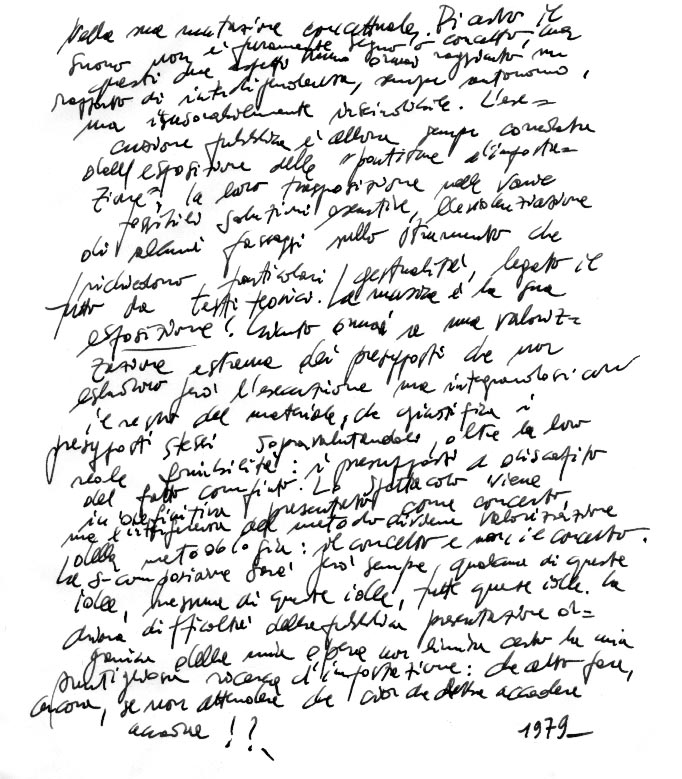 nella sua mutazione concettuale. Di certo il
suono non è puramente segno o concetto, ma
questi due aspetti hanno ormai raggiunto un
rapporto di interdipendenza, sempre autonomo,
ma inesorabilmente inscindibile. L'ese=
cuzione pubblica è allora sempre corredata
dall'esposizione delle "partiture d'imposta=
zione", la loro trasposizione nelle varie
possibili soluzioni esecutive,
di alcuni passaggi sullo strumento che
richiedono particolari gestualità, legato il
tutto da testi teorici. La musica è la sua
esposizione! ormai se una valoriz=
zazione estrema dei presupposti che non
escludono però l'esecuzione ma integrandosi con
il resto del materiale, che giustifica i
presupposti stessi sopravalutandoli, oltre la loro
reale fruibilità: i presupposti a discapito
del fatto compiuto. Lo spettacolo viene
in definitiva presentato come concerto
ma l'interferenza del metodo diviene valorizzazione
della metodologia: il concetto e non il concerto.
La s-composizione sarà però sempre, qualcuna di queste
idee, nessuna di queste idee, tutte queste idee. La
difficoltà della pubblica presentazione or=
ganica della mia opera non limita certo la mia
ricerca d'impostazione: che altro fare,
ancora, se non attendere che ciò che deve accadere
accada!?
1979_